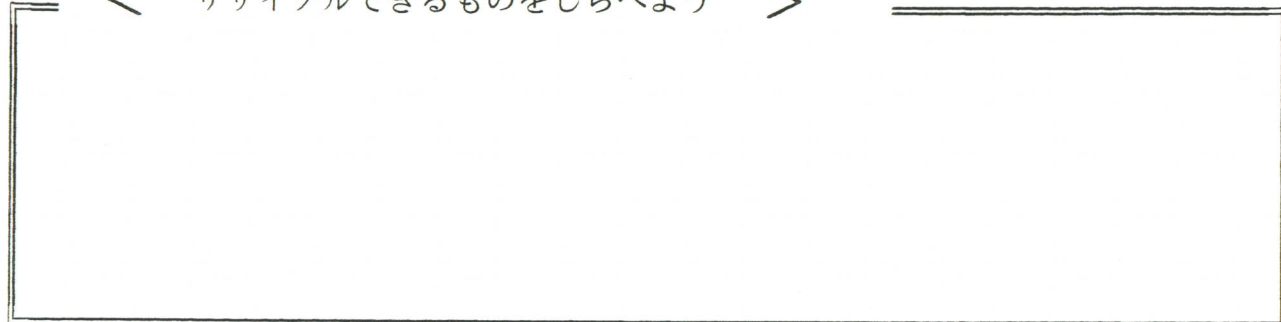 リサイクルできるものをしらべよう